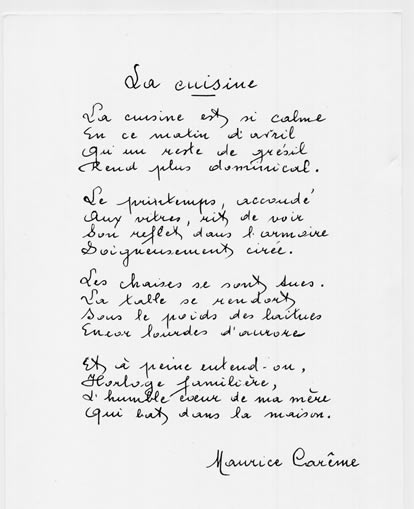 La cuisine
La cuisine est si calme
En ce matin d'avril
Qu'un reste de grésil
Rend plus dominical.
Le printemps, accoudé
Aux vitres, rit de voir
Son reflet dans l'armoire
Soigneusement cirée.
Les chaises se sont tues.
La table se rendort
Sous le poids des laitues
Encor lourdes d'aurore
Et à peine entend-on,
Horloge familière,
L'humble cœur de ma mère
Qui bat dans la maison.
Maurice Carême